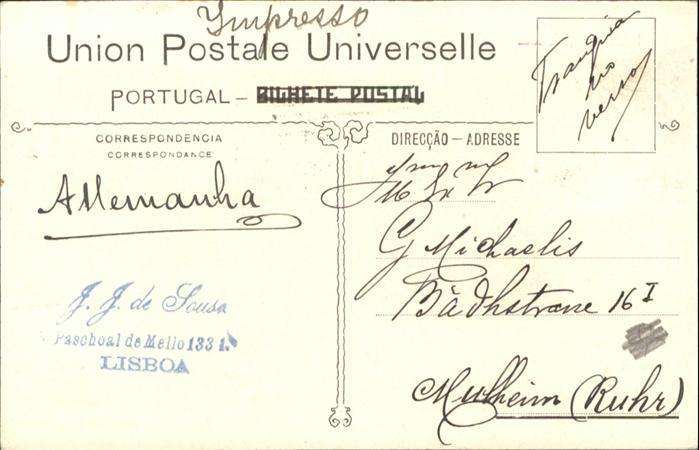 Impresso
Union Postale Universelle
PORTUGAL — BILHETE POSTAL
Franquia
no
verso
CORRESPONDENCIA
CORRESPONDANCE
DIRECÇÃO — ADRESSE
Allemanha
G Michaelis
16 I
Mulheim (Ruhr)
J. J. de Sousa
Paschoal de Mello 133 1.º
LISBOA